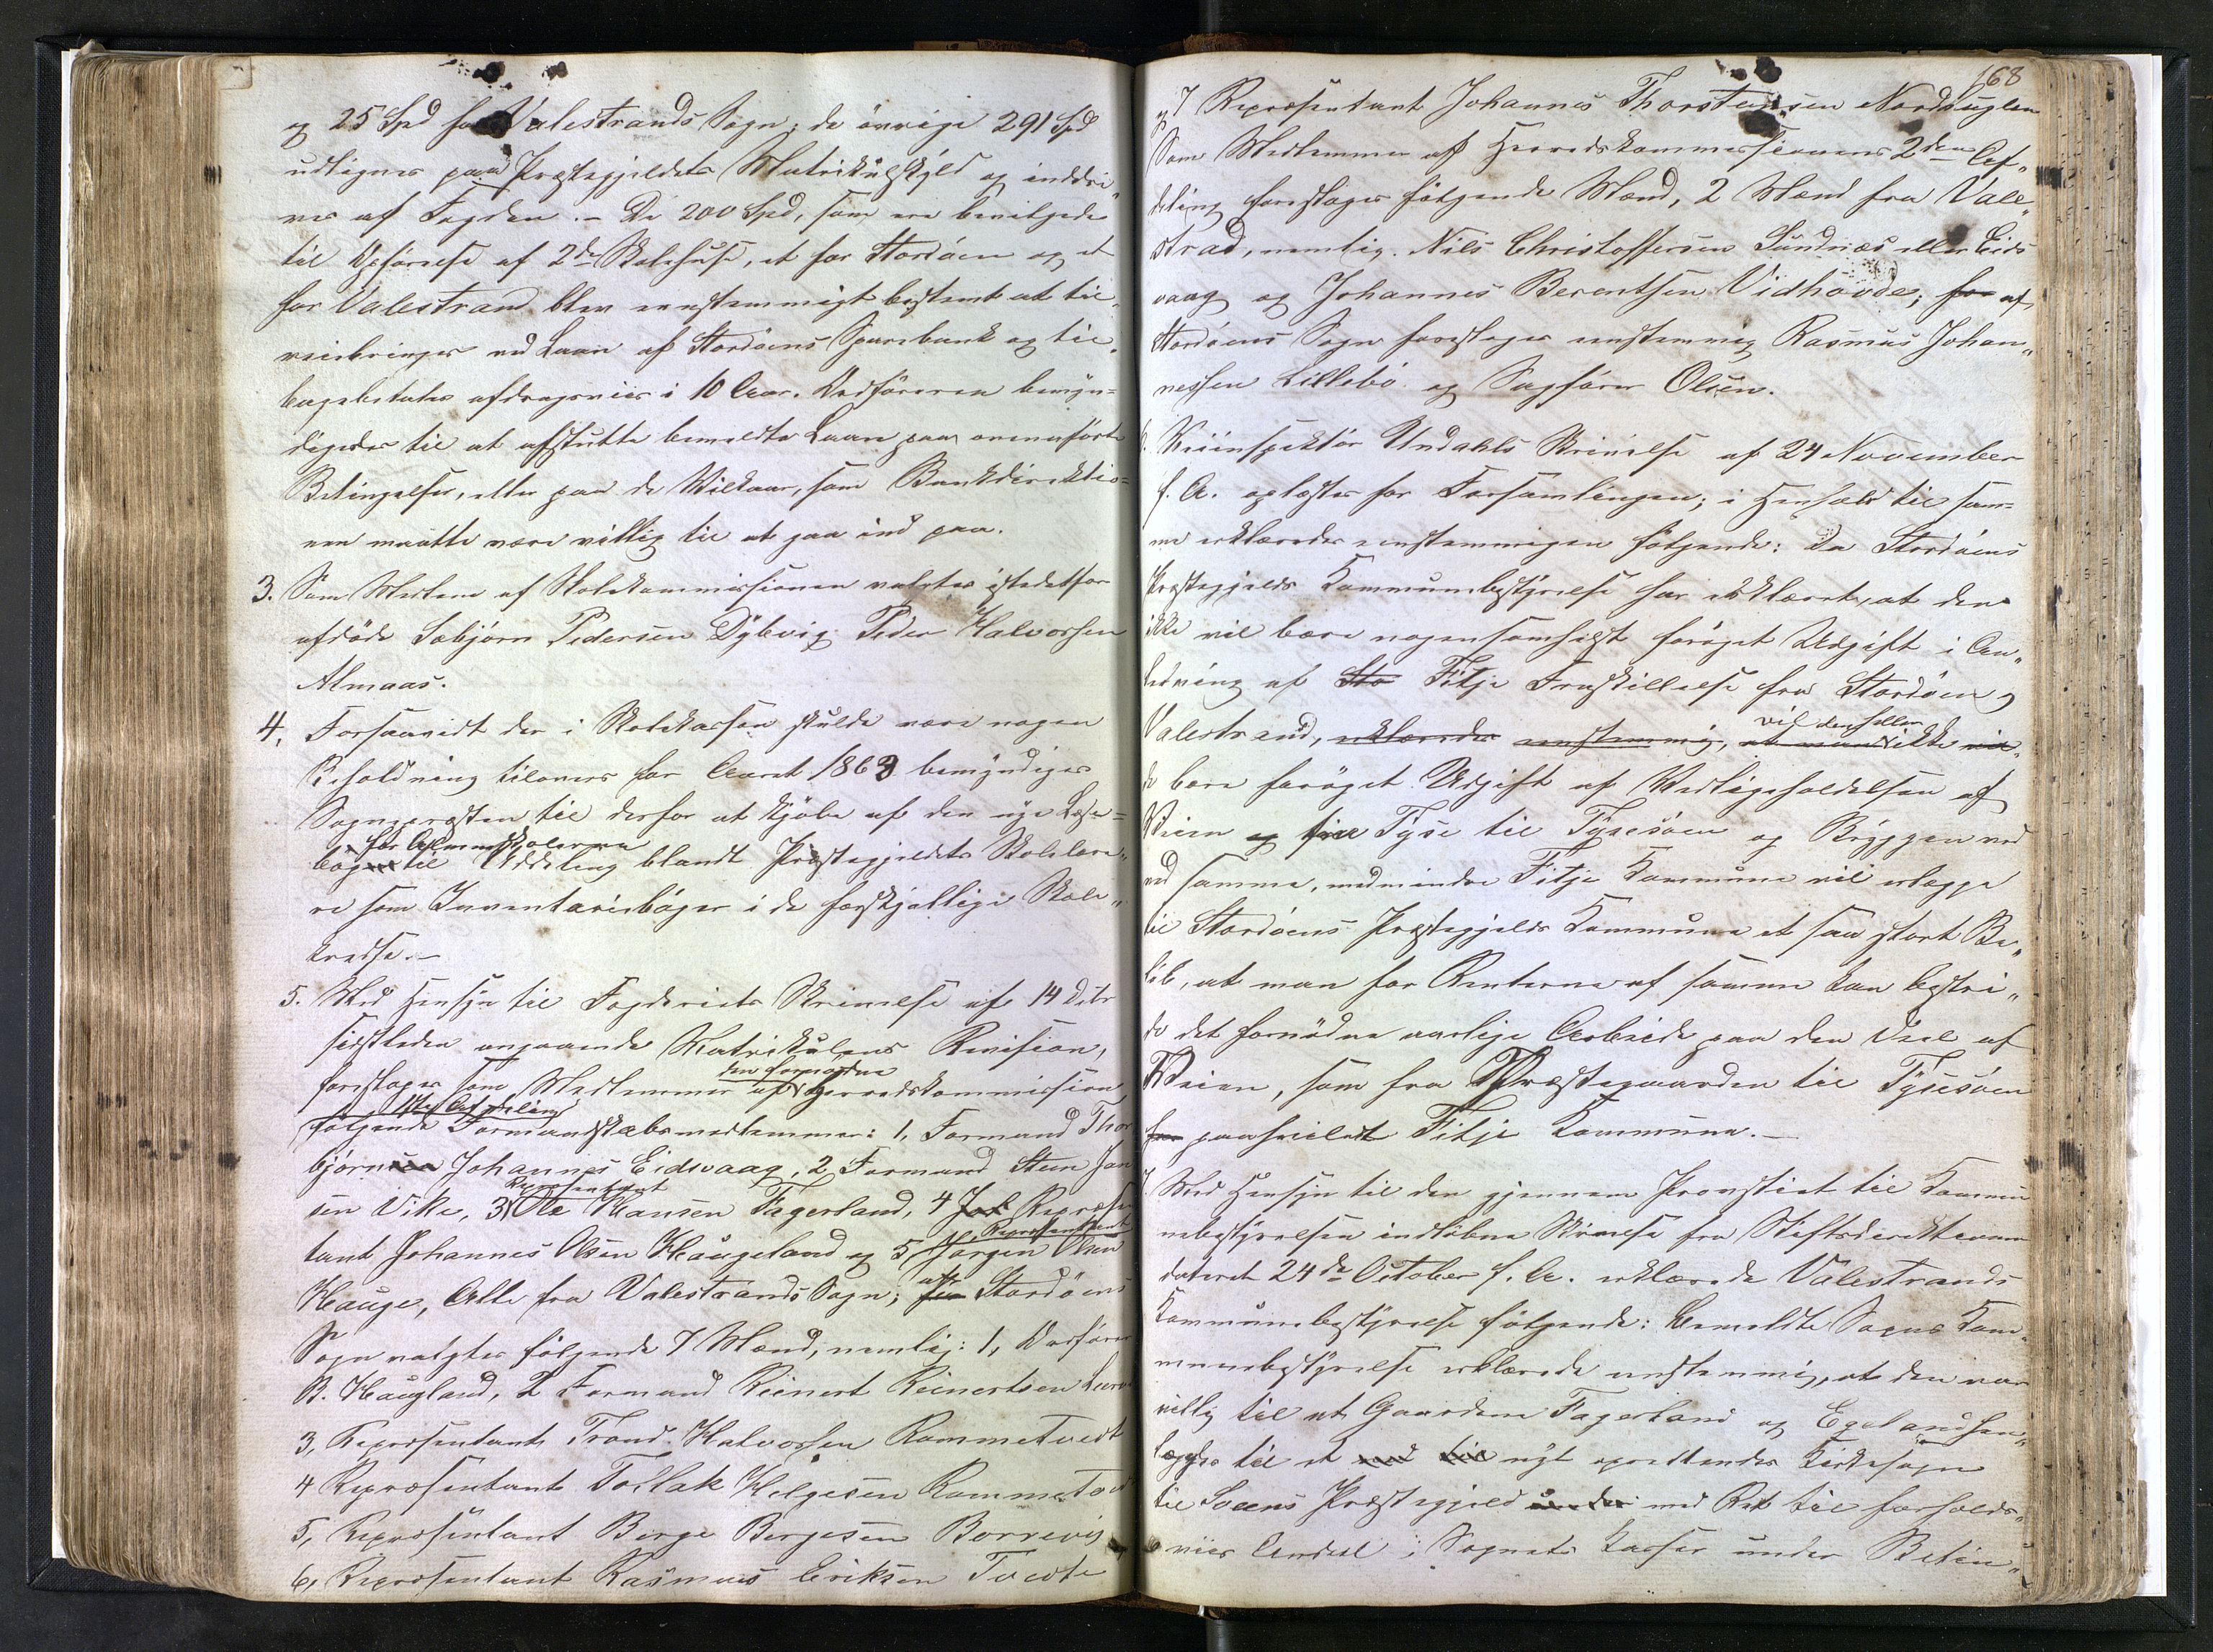 og 25 Spd for Valestrands Sogn; de øvrige 291 Spd
udlignes paa Præstegjeldets Matrikulskyld og inddri„
ves af Fogden. – De 200 Spd, som ere bevilgede
til Opførelse af 2de Skolehuse, et for Stordøen og et
for Valestrand blev eenstemmigt bestemt at til„
veiebringes ved Laan af Stordøens Sparebank og til„
bagebetales afdragsviis i 10 Aar. Ordføreren bemyn=
digedes til at afslutte bemeldte Laan paa ovenanførte
Betingelser, eller paa de Vilkaar, som Bankdirektio=
nen maatte være villig til at gaa ind paa.
3. Som Medlem af Skolekommissionen valgtes istedetfor
afdöde Sæbjørn Pedersen Dybvig Peder Halvorsen
Almaas.
4, Forsaavidt der i Skolekassen skulde være nogen
Beholdning tilovers for Aaret 1863 bemyndiges
Sognepræsten til derfor at kjöbe af den nye Læse=
for Almueskolerne
bog til Uddeling blandt Præstegjeldets Skolelære„
re som Inventariebøger i de forskjellige Skole„
kredse.–
5. Med Hensyn til Fogderiets Skrivelse af 14 Octbr
sidstleden angaaende Matrikulens Revision,
den fornødne
foreslages som Medlemmer af Herredskommission
1ste Afdeling
følgende Formandskabsmedlemmer: 1, Formand Thor
bjørn Johannes Eidsvaag, 2 Formand Steen Jan
Repræsentant
sen Vike, 3 Ole Hansen Fagerland, 4 Repræsen
Repræsentant
tant Johannes Olsen Haugeland og 5 Jørgen Olsen
af
Hauge, Alle fra Valestrands Sogn; for Stordøens
Sogn valgtes følgende 7 Mænd, nemlig: 1, Ordfører
B. Haugland, 2 Formand Reinert Reinertsen
3, Repræsentant Trond Halvorsen Rommetvedt
4 Repræsentant Tollak Helgesen Rommetved
5, Repræsentant Berge Bergesen Borrevig
6, Repræsentant Rasmus Eriksen Tvedte
168
og 7 Repræsentant Johannes Thorstensen Nordhuglen
Som Medlemmer af Herredskommissionens 2den Af„
deling foreslages følgende Mænd, 2 Mænd fra Vale„
strad, nemlig. Nils Christoffersen Sundnæs eller Eids
vaag og Johannes Berentsen Vidhovde; for af
Stordøens Sogn foreslages eenstemmig Rasmus Johan„
nessen Lillebö og Sagfører Olsen.
6. Veiinspektör Undahls Skrivelse af 24 November
f. A. oplæstes for Forsamlingen; i Henhold til sam=
me erklæredes eenstemmigen følgende: Da Stordøens
Præstegjelds Kommunebestyrelse har erklæret, at den
ikke vil bære nogensomhelst forøget Udgift i An„
ledning af Sto Fitje Fraskillelse fra Stordøen og
vil den heller
Valestrand, erklæredes eenstemmig, at man ikke vil
de bære forøget Udgift af Vedligeholdelsen af
Veien og fra Tyse til Tysesøen og Bryggen ved
ved samme, medmindre Fitje Kommune vil erlægge
til Stordøens Præstegjelds Kommune et saa stort Be„
löb, at man for Renterne af samme kan bestri„
de det fornødne aarlige Arbeide paa den Deel af
Veien, som fra Præstegaarden til Tysesøen
for paahvilet Fitje Kommune.–
7. Med Hensyn til den gjennem Provstiet til Kommu
nebestyrelsen indløbne Skrivelse fra Stiftsdirektionen
dateret 24de October f. A. erklærede Valestrands
Kommunebestyrelse følgende: Bemeldte Sogns Kom„
munebestyrelse erklærede eenstemmig, at den var
villig til at Gaardene Fagerland og Egelandsen„
lægges til et ved til nyt oprettendes Kirkesogn
til Sveens Præstegjeld under med Ret til forholds„
viis Andeel i Sognets Kasser under Betin„